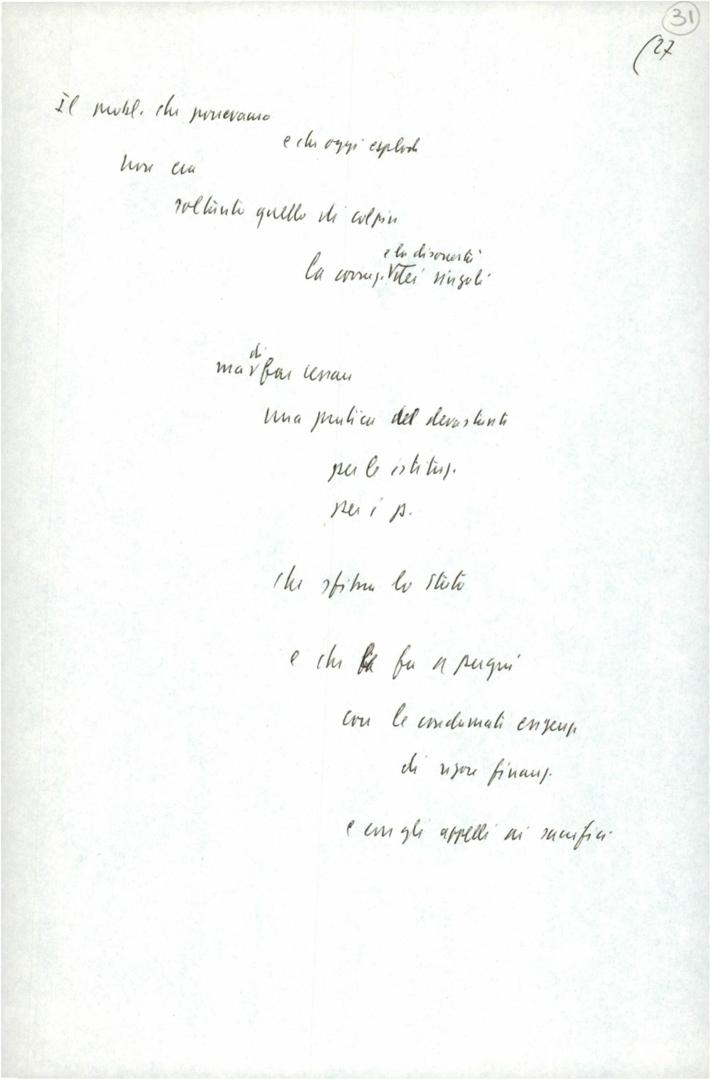 31
(27
Il probl. che ponevamo
e che oggi esplode
non era
soltanto quello di colpire
e la disonestà
la corruz. dei singoli
di
ma far cessare
una pratica devastante
per le istituz.
per i p.
che sfibra lo Stato
e che fa a pugni
con le conclamate esigenze
di rigore finanz.
e con gli appelli ai sacrifici